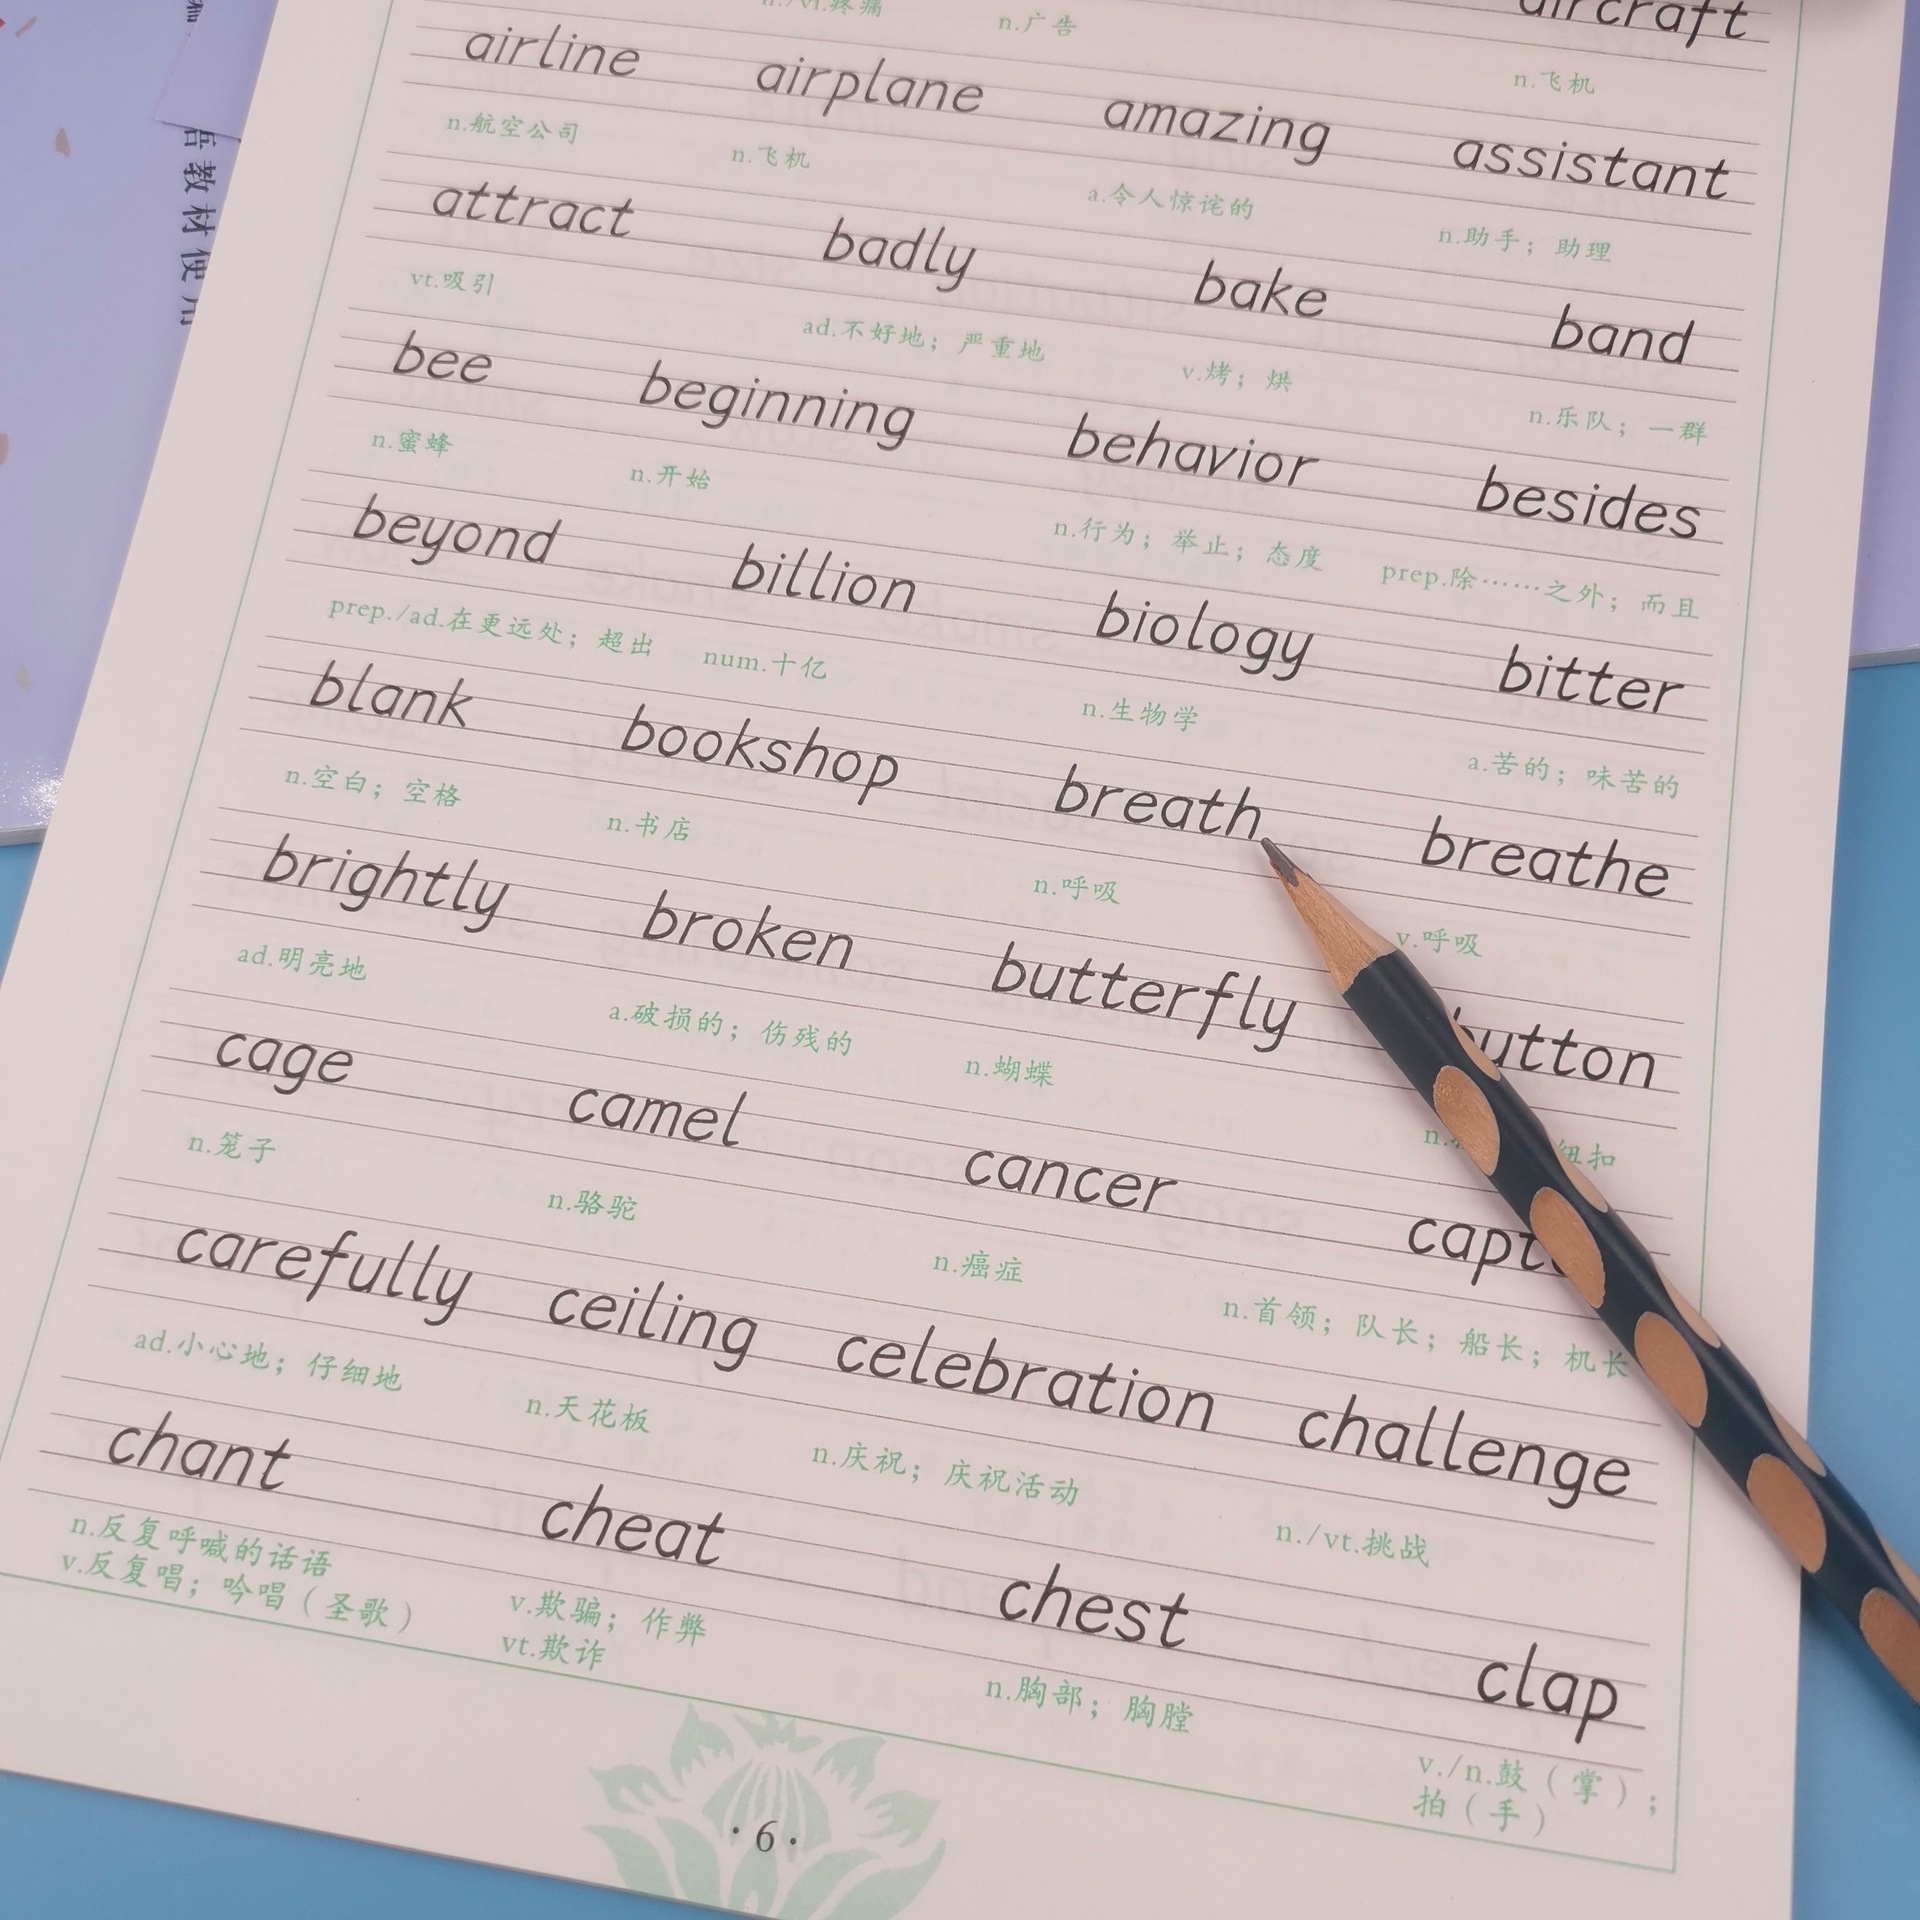 n./vt.疼痛 n.广告 aircraft
n.飞机
airline airplane amazing assistant
n.航空公司 n.飞机 a.令人惊诧的 n.助手；助理
attract badly bake band
vt.吸引 ad.不好地；严重地 v.烤；烘 n.乐队；一群
bee beginning behavior besides
n.蜜蜂 n.开始 n.行为；举止；态度 prep.除……之外；而且
beyond billion biology bitter
prep./ad.在更远处；超出 num.十亿 n.生物学 a.苦的；味苦的
blank bookshop breath breathe
n.空白；空格 n.书店 n.呼吸 v.呼吸
brightly broken butterfly button
ad.明亮地 a.破损的；伤残的 n.蝴蝶 n. 纽扣
cage camel cancer capt
n.笼子 n.骆驼 n.癌症 n.首领；队长；船长；机长
carefully ceiling celebration challenge
ad.小心地；仔细地 n.天花板 n.庆祝；庆祝活动 n./vt.挑战
chant cheat chest clap
n.反复呼喊的话语
v.反复唱；吟唱（圣歌） v.欺骗；作弊
vt.欺诈
n.胸部；胸膛
v./n.鼓（掌）；
拍（手）
·6·
教材使用